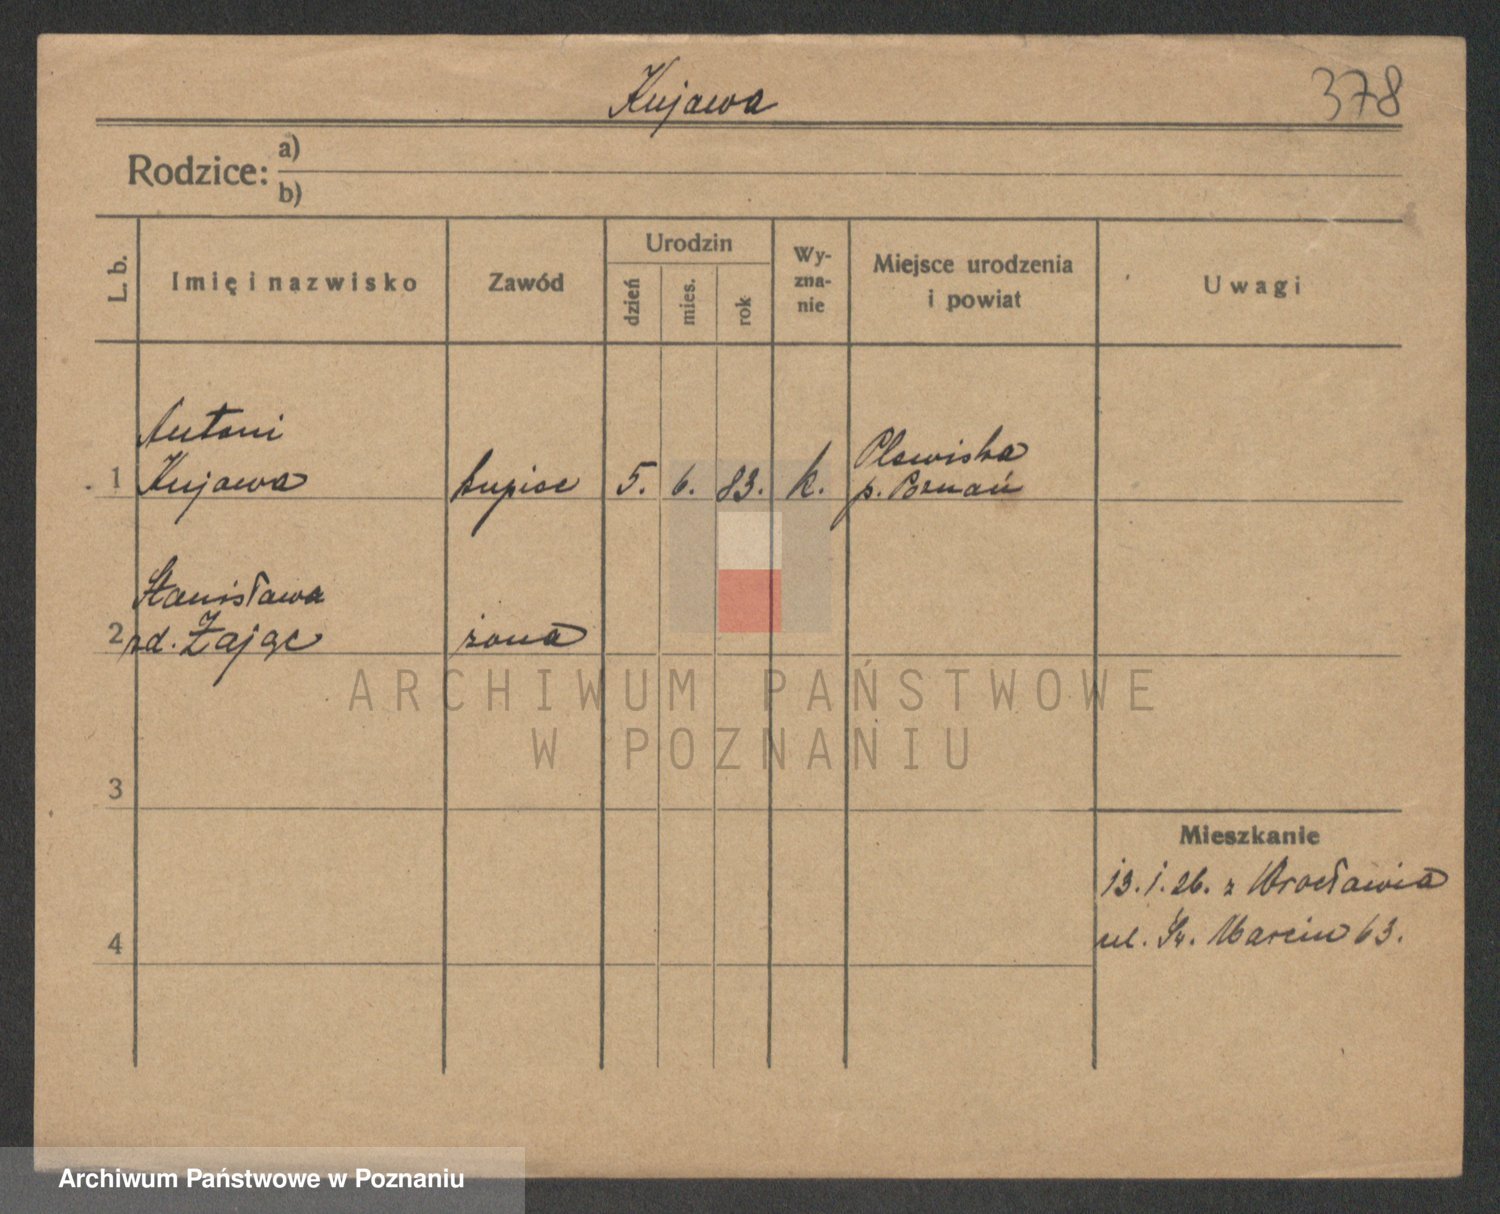 Kujawa
378
Rodzice: a)
b)
L. b.
Imię i nazwisko
Zawód
Urodzin
dzień
mies.
rok
Wy-
zna-
nie
Miejsce urodzenia
i powiat
Uwagi
Antoni
1 Kujawa kupiec 5. 6. 83. k. Plewiska
p. Poznań
Stanisława
2 zd. Zając żona
ARCHIWUM PAŃSTWOWE
W POZNANIU
3
Mieszkanie
13.1.26. z Wrocławia
4
ul. Św. Marcin 63.
Archiwum Państwowe w Poznaniu